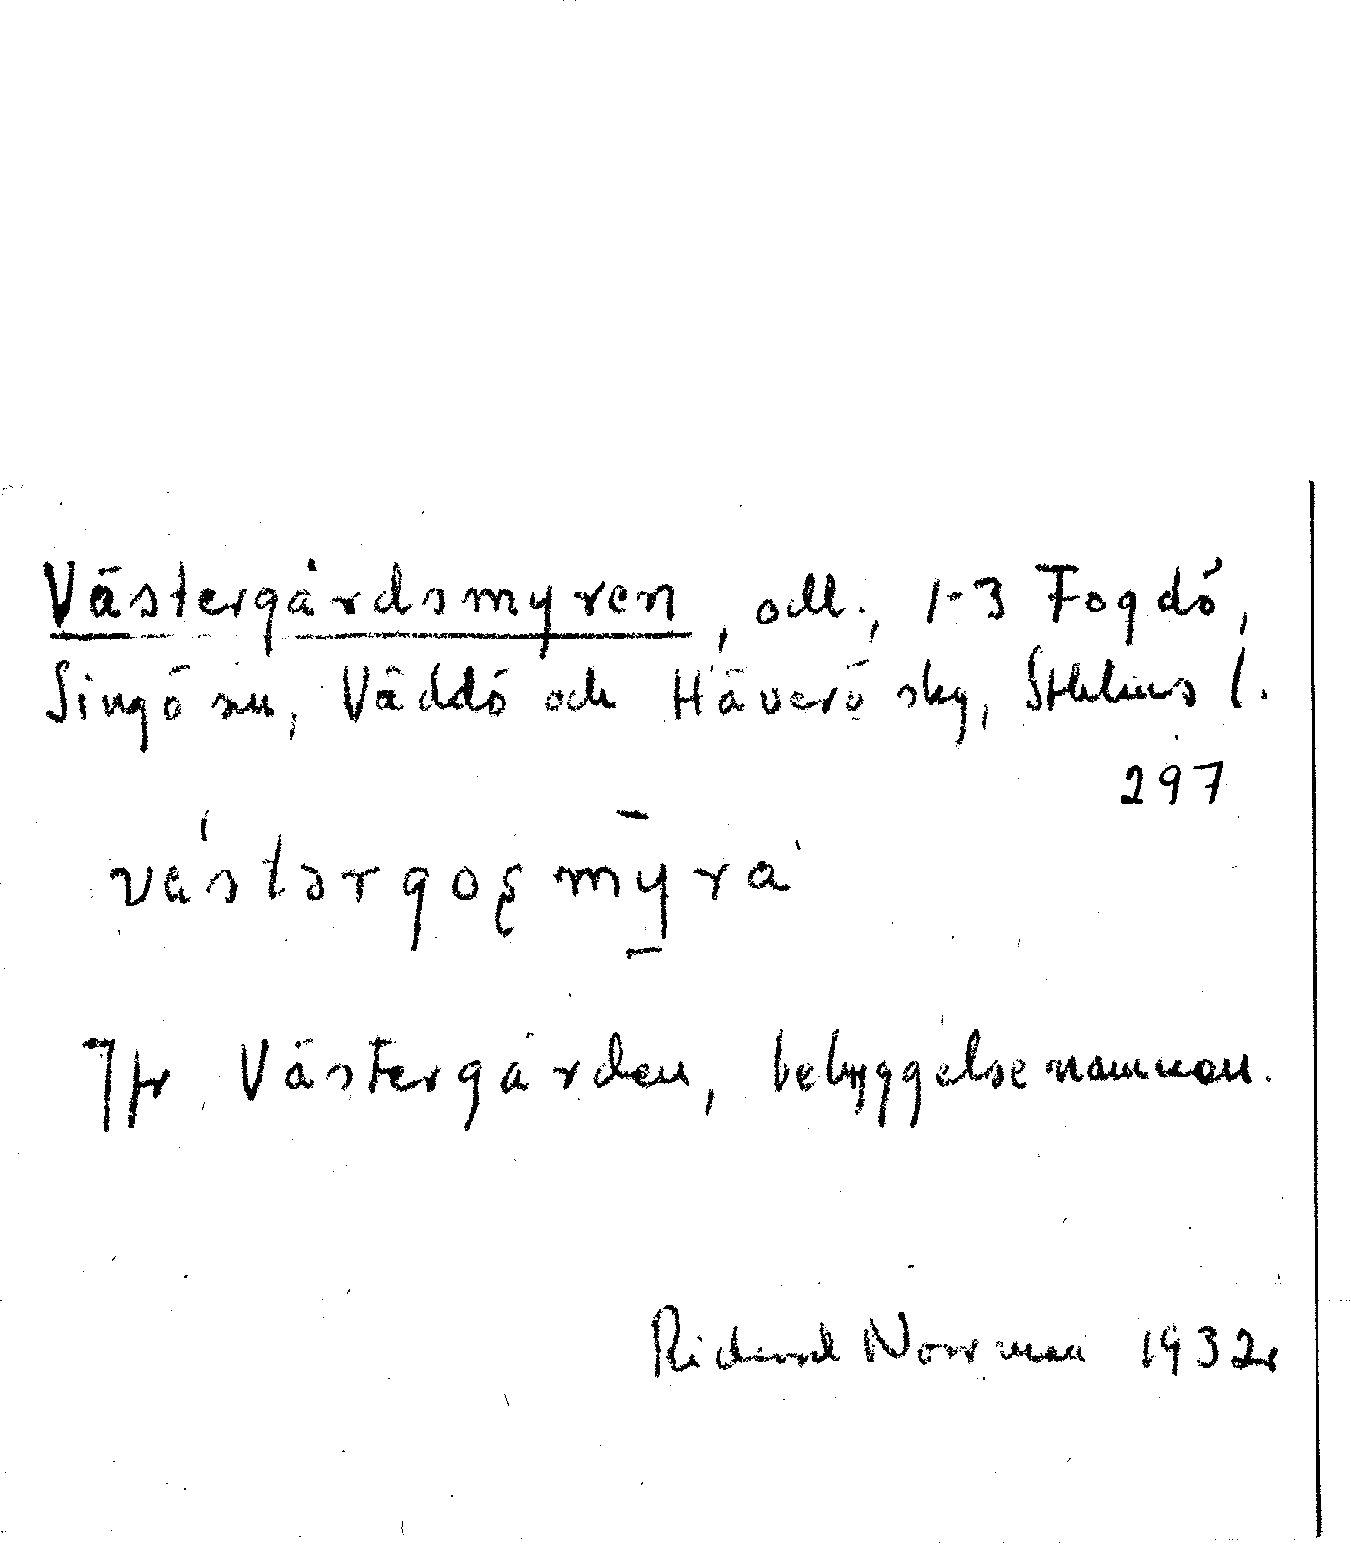 Västergårdsmyren, odl., 1-3 Fogdö,
Singö sn, Väddö och Häverö skg, Sthlms l.
297
västərgoʂmȳra
Jfr Västergården, bebyggelsenamnen.
Richard Norrman 1932